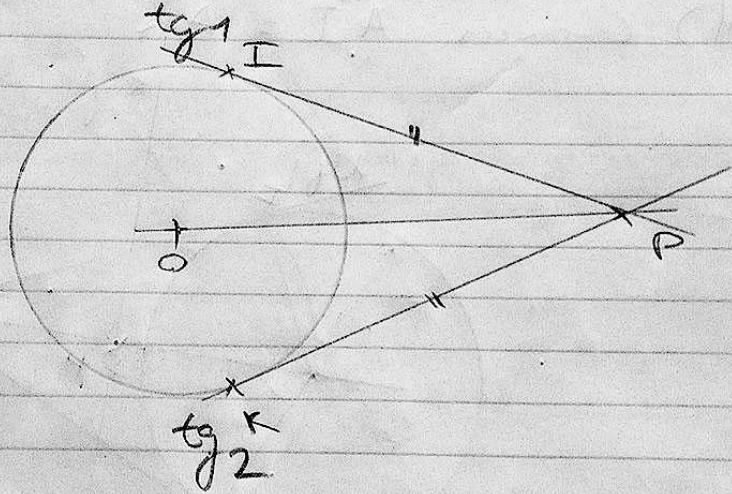 tg1
I
O
P
K
tg2